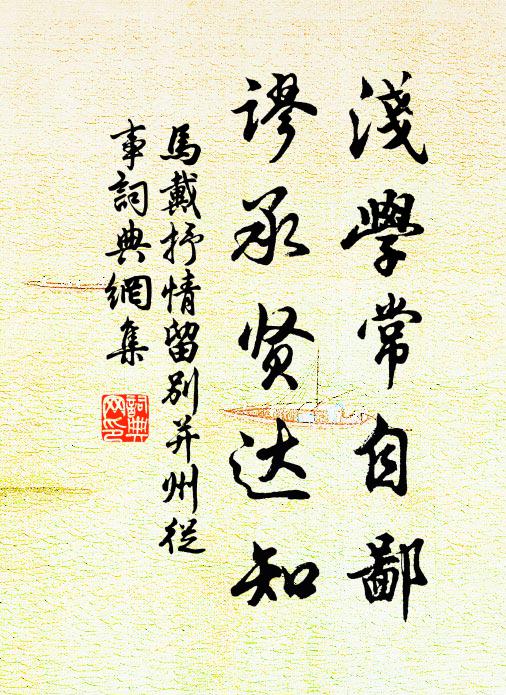 淺學常自鄙
謬承贤达知
馬戴抒情留別并州從
事詞典網集
詞典
网印